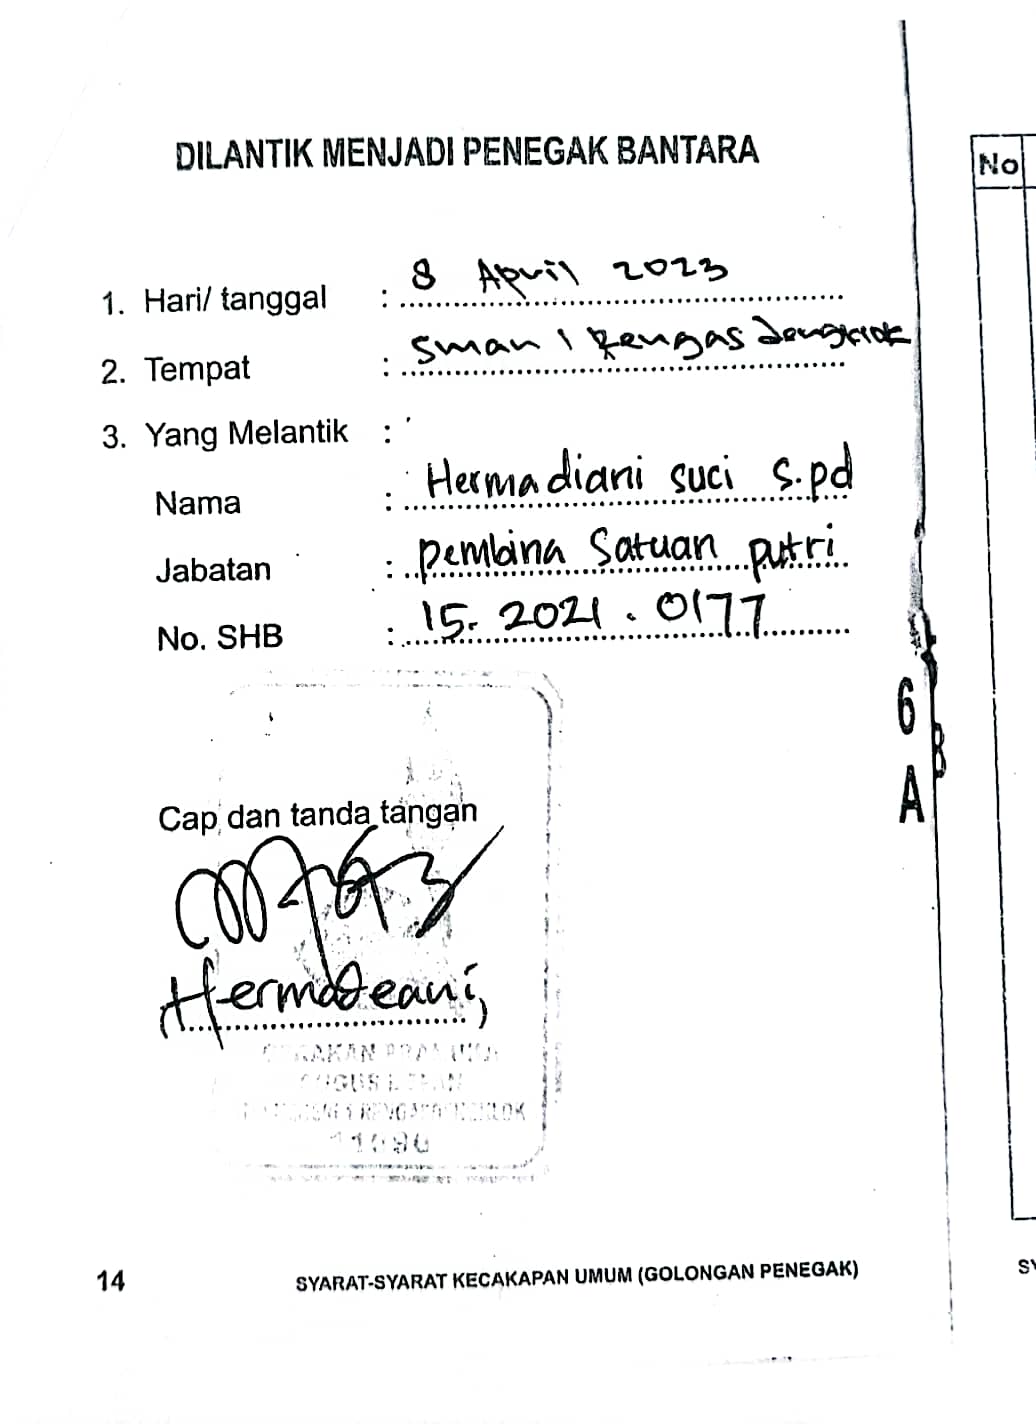 DILANTIK MENJADI PENEGAK BANTARA
No
1. Hari/ tanggal : 8 April 2023
2. Tempat : Sman 1 Rengasdengklok
3. Yang Melantik :
Nama : Hermadiani suci s.pd
Jabatan : Pembina Satuan putri
No. SHB : 15. 2021 . 0177
6
A
Cap dan tanda tangan
Hermadeani
14
SYARAT-SYARAT KECAKAPAN UMUM (GOLONGAN PENEGAK)
SY